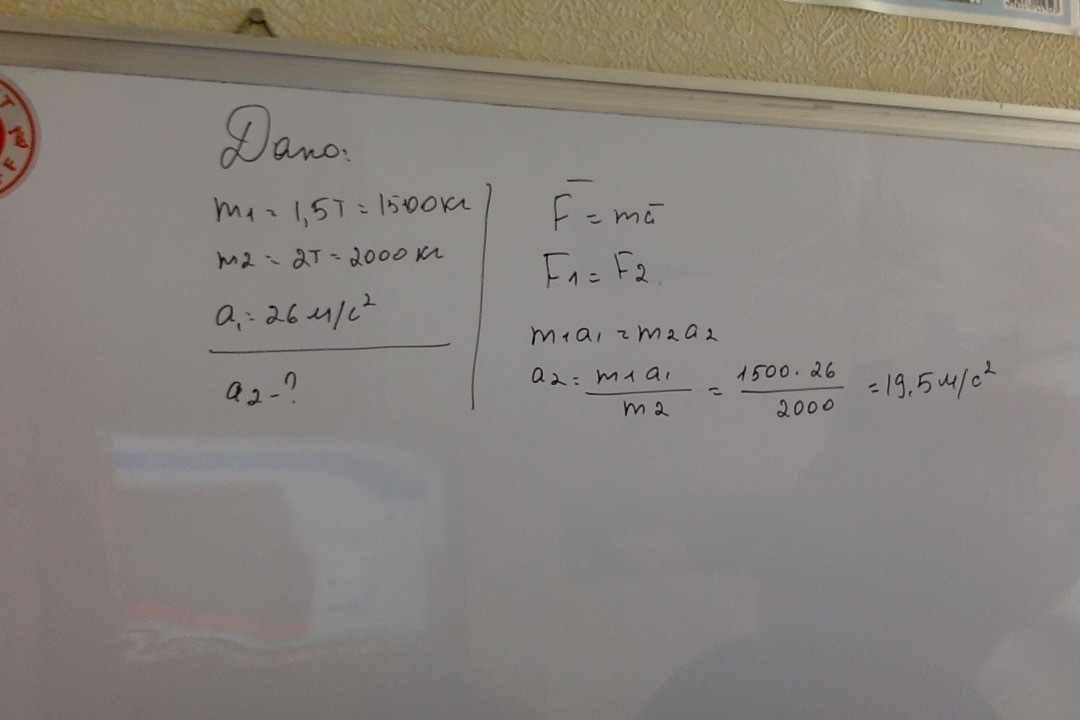 Дано:
m1 = 1,5т = 1500кг
m2 = 2т = 2000 кг
a1 = 26 м/с²
a2 - ?
F̅ = ma̅
F1 = F2.
m1a1 = m2a2
a2 = m1a1 / m2 = 1500 · 26 / 2000 = 19,5 м/с²